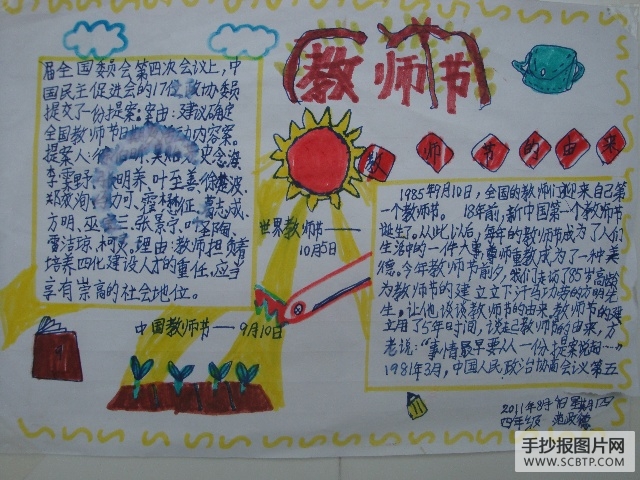 教师节
教师节的由来
1985年9月10日,全国的教师们迎来自己第
一个教师节。18年前,新中国第一个教师节
诞生。从此以后,每年的教师节成为了人们
生活中的一件大事,尊师重教成为了一种美
德。今年教师节前夕,我们走访了85岁高龄
为教师节的建立立下汗马功劳的方明先
生。让他谈谈教师节的由来,教师节的建
立用了5年时间,谈起教师节的由来,方
老说:“事情最早要从一份提案说起……”
1981年3月,中国人民政治协商会议第五
届全国委员会第四次会议上,中
国民主促进会的17位政协委员
提交了一份提案。案由:建议确定
全国教师节日期及活动内容案。
提案人:
李霁野 明养 叶至善
志成、
方明、巫 张景宁、
雷洁琼、柯灵。理由:教师担负着
培养四化建设人才的重任,应当
享有崇高的社会地位。
世界教师节——
10月5日
中国教师节——9月10日
2011年8月 日 星期四
四年级
手抄报图片网
WWW.SCBTP.COM